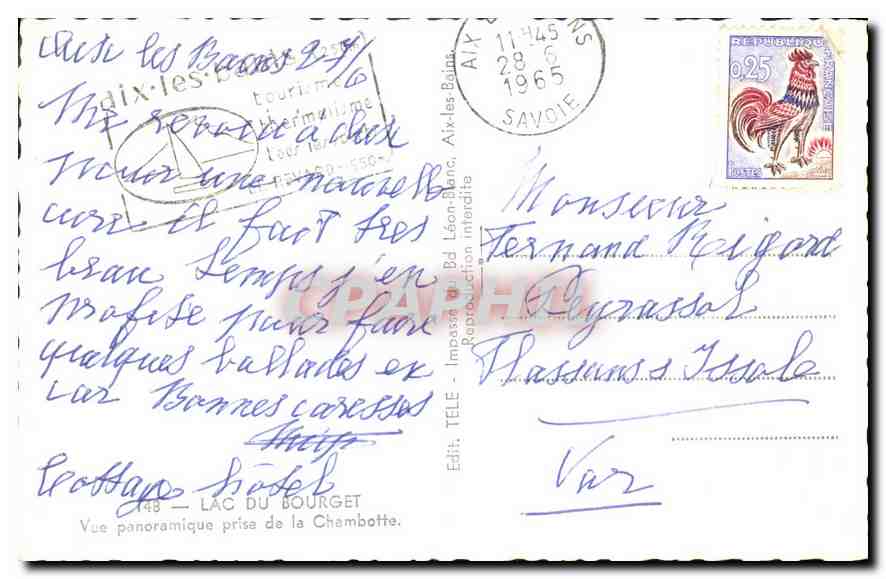 Aix les Bains 27/6
Me revoici à Aix
pour une nouvelle
cure il fait très
beau temps j'en
profite pour faire
quelques ballades en
car Bonnes caresses
Cottage hôtel
148 — LAC DU BOURGET
Vue panoramique prise de la Chambotte.
aix-les-bains
tourisme
thermalisme
Edit. TELE - Impasse du Bd Léon-Blanc, Aix-les-Bains
Reproduction interdite
CPAPHIL
AIX LES BAINS
11H45
28 6
1965
SAVOIE
REPUBLIQUE FRANÇAISE
0,25
POSTES
Monsieur
Fernand Rigord
Peyrassol
Flassans s Issole
Var